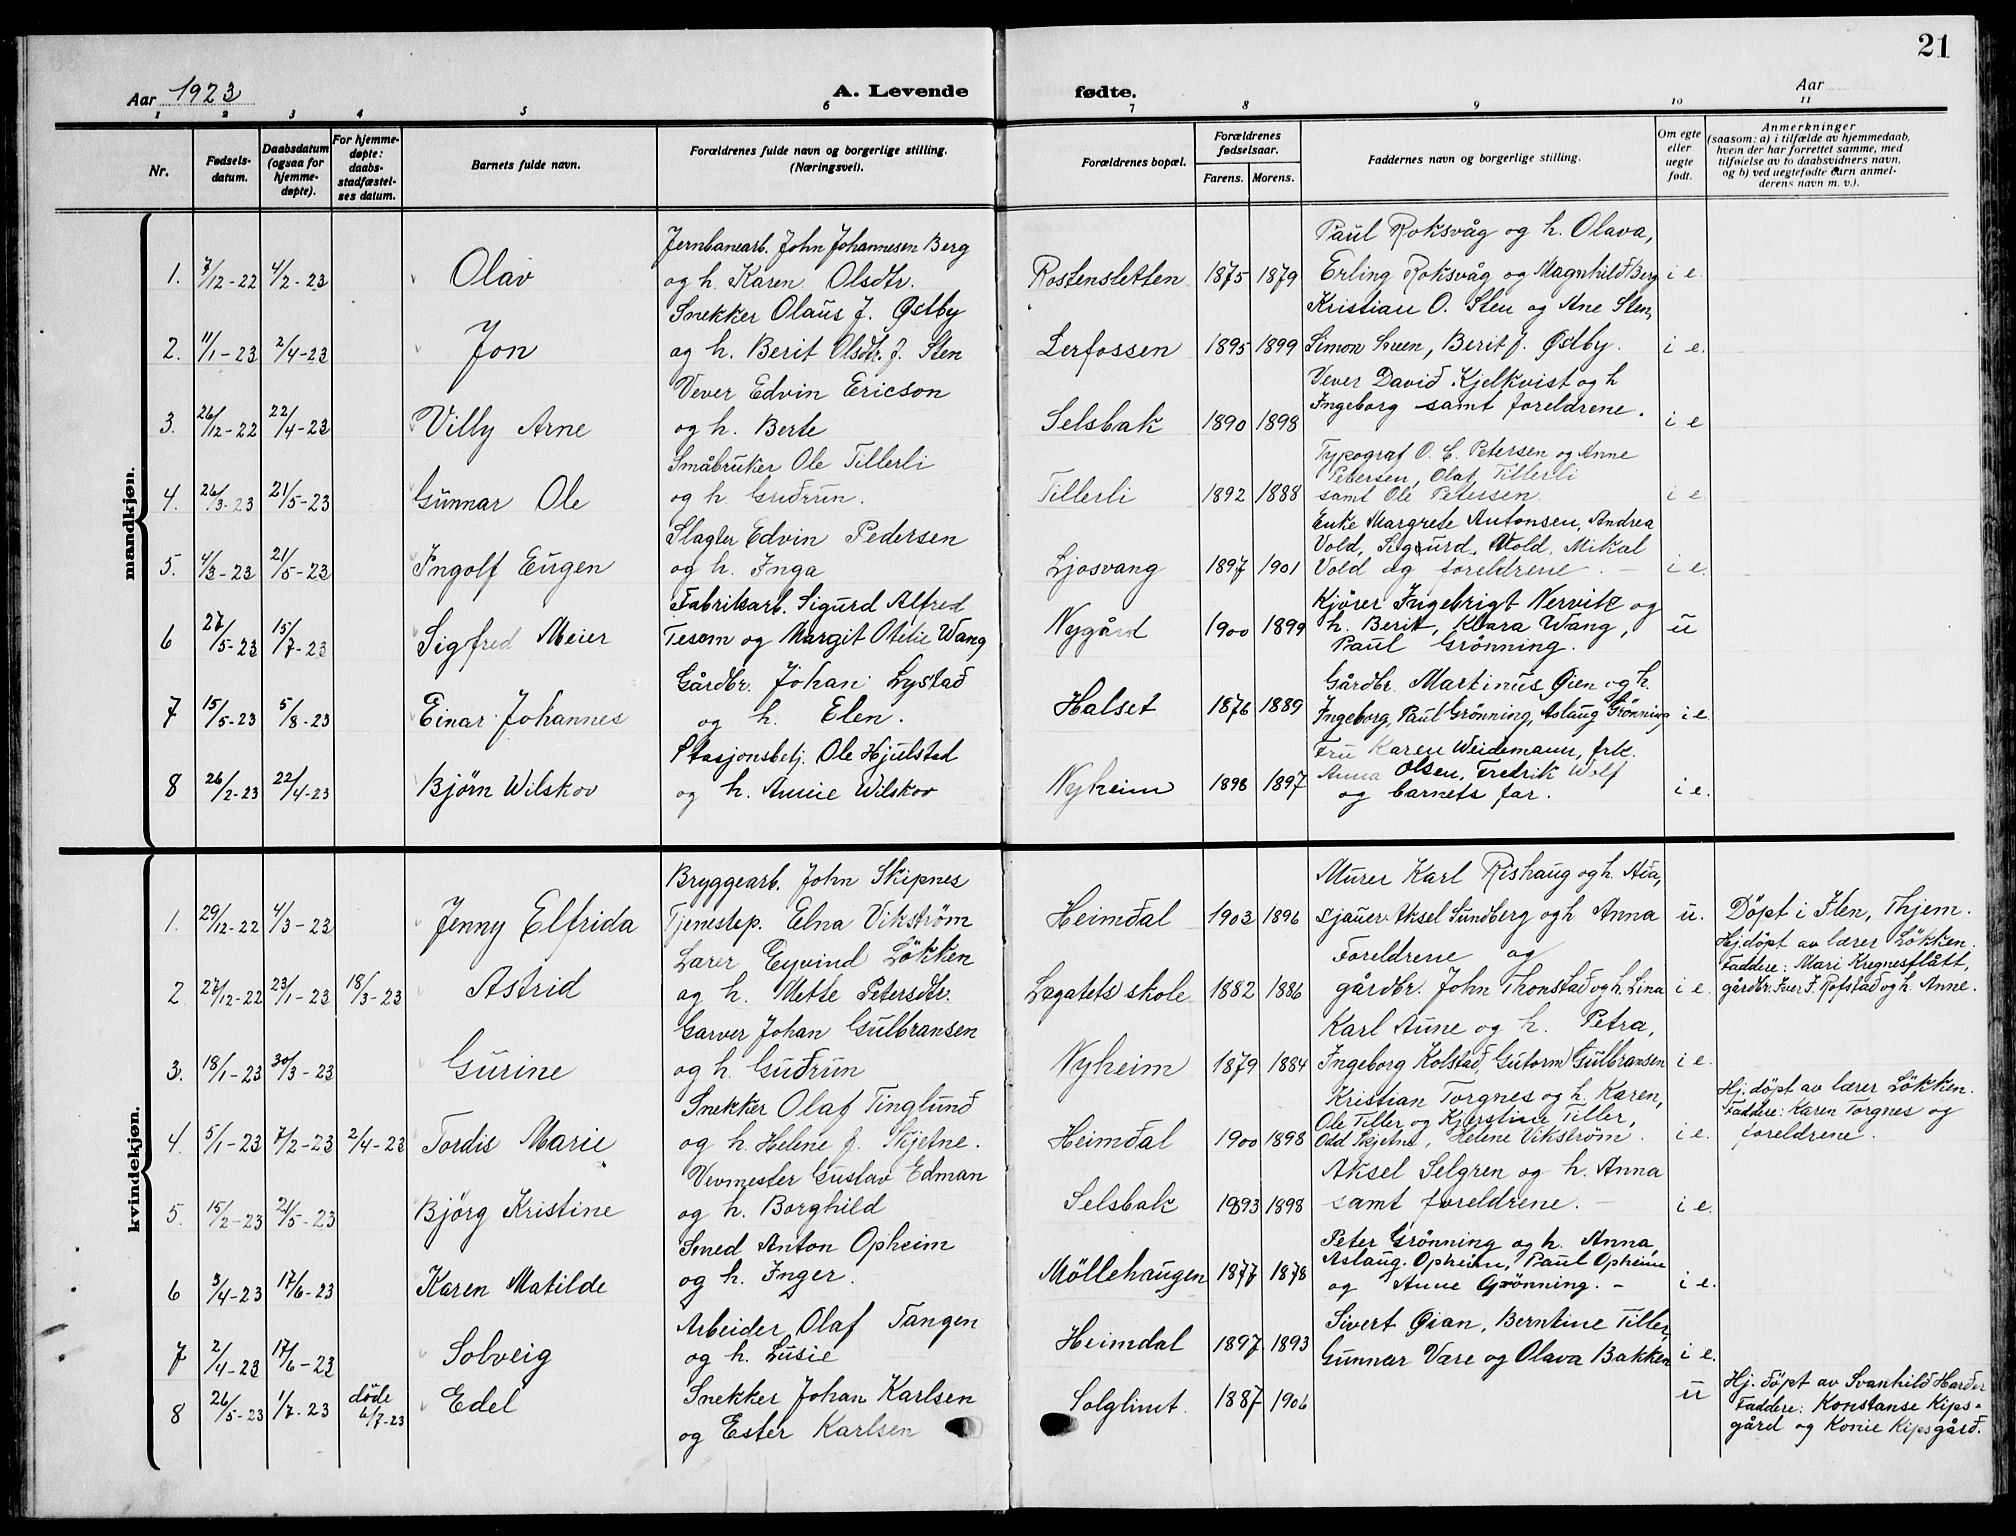 21
Aar 1923
A. Levende fødte.
Aar
1 2 3 4 5 6 7 8 9 10 11
Nr.
Fødsels-
datum.
Daabsdatum
(ogsaa for
hjemme-
døpte).
For hjemme-
døpte:
daabs-
stadfæstel-
ses datum.
Barnets fulde navn.
Forældrenes fulde navn og borgerlige stilling.
(Næringsvei).
Forældrenes bopæl.
Forældrenes
fødselsaar.
Farens. Morens.
Faddernes navn og borgerlige stilling.
Om egte
eller
uegte
født.
Anmerkninger
(saasom: a) i tilfælde av hjemmedaab,
hvem der har forrettet samme, med
tilføielse av to daabsvidners navn,
og b) ved uegtefødte barn anmel-
derens navn m. v.).
mandkjøn.
Jernbanearb. John Johannesen Berg
Paul Roksvåg og h. Olava,
1. 7/12-22 4/2-23 Olav og h. Karen Olsdtr. Rostensletten 1875 1879 Erling Roksvåg og Magnhild Berg i e.
Snekker Olaus J. Østby
Kristian O. Sten og Ane Sten,
2. 11/1-23 2/4-23 Jon og h. Berit Olsdtr. f. Sten Lerfossen 1895 1899 Simon Sveen, Berit J. Østby. i e.
Vever Edvin Ericson
Vever David Kjelkvist og h
3. 26/12-22 22/4-23 Villy Arne og h. Berte Selsbak 1890 1898 Ingeborg samt foreldrene. i e
Småbruker Ole Tillerli
Typograf O. C. Petersen og Anne
Petersen, Olaf Tillerli
4. 26/3-23 21/5-23 Gunnar Ole og h Gudrun. Tillerli 1892 1888 samt Ole Petersen. i e
Slagter Edvin Pedersen
Enke Margrete Antonsen, Andrea
Vold, Sigurd Vold, Mikal
5. 4/3-23 21/5-23 Ingolf Eugen og h. Inga Ljosvang 1897 1901 Vold og foreldrene. - i e.
Fabrikarb. Sigurd Alfred
Kjører Ingebrigt Nervik og
6 27/5-23 15/7-23 Sigfred Meier Tesem og Margit Otelie Wang Nygård 1900 1899 h. Berit, Klara Wang, u
Paul Grönning.
Gårdbr. Johan Lystad
Gårdbr. Martinus Øien og h.
7 15/5-23 5/8-23 Einar Johannes og h. Elen. Halset 1876 1889 Ingeborg, Paul Grönning, Aslaug Grönning i e.
Stasjonsbetj. Ole Hjulstad
Fru Karen Weidemann, frk.
8 26/2-23 22/4-23 Bjørn Wilskov og h. Annie Wilskov Nyheim 1898 1897 Anna Olsen, Fredrik Wolf i e.
og barnets far.
kvindekjøn.
Bryggearb. John Skipnes
Murer Karl Rishaug og h. Aða,
1. 29/12-22 4/3-23 Jenny Elfrida Tjenestep. Elna Vikström Heimdal 1903 1896 Sjauer Aksel Sundberg og h Anna u. Döpt i Ilen, Thjem.
Lærer Eyvind Lökken
Foreldrene og
Hj.döpt av lærer Lökken.
Faddere: Mari Kregnesflått,
2. 27/12-22 23/1-23 18/3-23 Astrid og h. Mette Petersdtr. Legatets skole 1882 1886 gårdbr. John Thonstad og h. Lina i e. gårdbr. Iver J. Rofstad og h. Anne.
Garver Johan Gulbransen
Karl Aune og h. Petra,
3. 18/1-23 30/3-23 Gurine og h. Gudrun Nyheim 1879 1884 Ingeborg Kolstad, Gutorm Gulbransen i e.
Snekker Olaf Tinglund
Kristian Torgnes og h. Karen,
Ole Tiller og Kjerstine Tiller,
Hj. döpt av lærer Lökken.
Faddere: Karen Torgnes og
4. 5/1-23 7/2-23 2/4-23 Tordis Marie og h. Helene f. Skjetne. Heimdal 1900 1898 Odd Skjetne, Helene Vikström. i e. foreldrene.
Vevmester Gustav Edman
Aksel Selgren og h. Anna
5. 15/2-23 21/5-23 Björg Kristine og h. Borghild Selsbak 1893 1898 samt foreldrene. - i e.
Smed Anton Opheim
Peter Grönning og h. Anna,
Aslaug Opheim, Paul Opheim
6 3/4-23 17/6-23 Karen Matilde og h. Inger. Möllehaugen 1877 1878 og Anne Grönning. - i e.
Arbeider Olaf Tangen
Sivert Øian, Berntine Tiller,
7 2/4-23 17/6-23 Solveig og h. Lusie Heimdal 1897 1893 Gunnar Være og Olava Bakken i e.
8 26/5-23 1/7-23 döde 6/7-23 Edel Snekker Johan Karlsen
og Ester Karlsen Solglimt. 1887 1906 u Hj. döpt av Svanhild Harder
Faddere: Konstanse Kips-
gård og Konie Kipsgård.